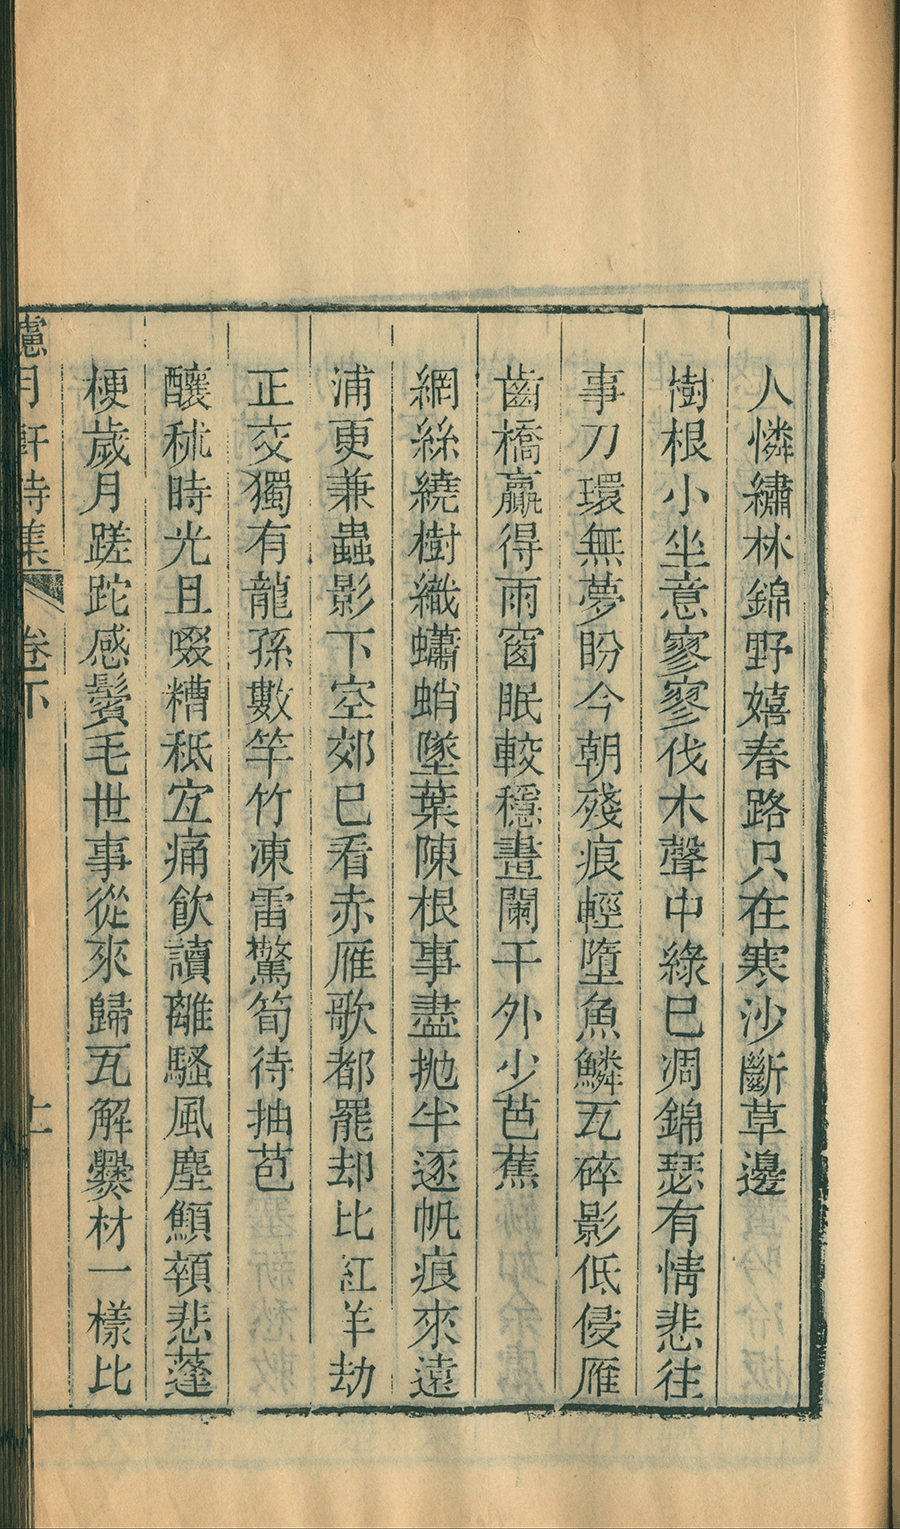 人憐繡林錦野嬉春路只在寒沙斷草邊
樹根小坐意寥寥伐木聲中綠已凋錦瑟有情悲往
事刀環無夢盼今朝殘痕輕墮魚鱗瓦碎影低侵雁
齒橋贏得雨窗眠較穩畫闌干外少芭蕉
網絲繞樹織蠨蛸墜葉陳根事盡拋半逐帆痕來遠
浦更兼蟲影下空郊已看赤雁歌都罷却比紅羊劫
正交獨有龍孫數竿竹凍雷驚筍待抽苞
釀秫時光且啜糟秪宜痛飲讀離騷風塵顦顇悲蓬
梗歲月蹉跎感鬢毛世事從來歸瓦解爨材一樣比
慮月軒詩集 卷下